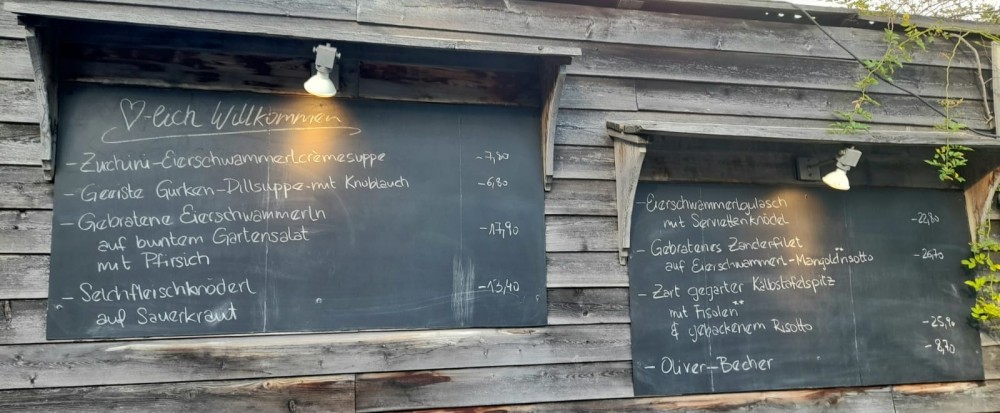 ♡-lich Willkommen
- Zuchini-Eierschwammerlcrèmesuppe -7,80
- Geeiste Gurken-Dillsuppe mit Knoblauch -6,80
- Gebratene Eierschwammerln
auf buntem Gartensalat -17,90
mit Pfirsich
- Selchfleischknöderl -13,40
auf Sauerkraut
- Eierschwammerlgulasch
mit Serviettenknödel -22,80
- Gebratenes Zanderfilet
auf Eierschwammerl-Mangoldrisotto -26,70
- Zart gegarter Kalbstafelspitz
mit Fisolen
& gebackenem Risotto -25,90
- 8,70
- Oliver-Becher